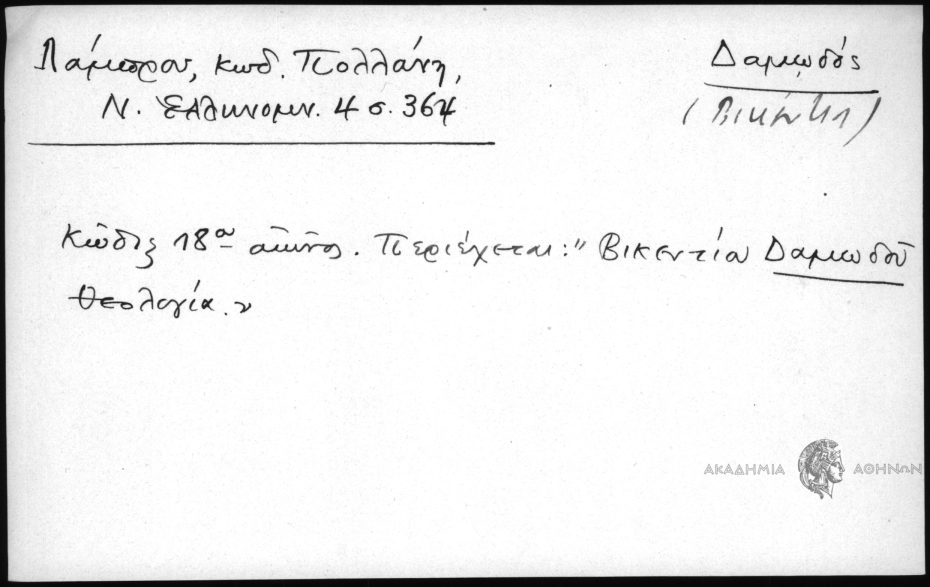 Λάμπρου, κωδ. Πολλάνη,
Ν. Ἑλληνομν. 4 σ. 364
Δαμωδός
(Βικέντιος)
Κῶδιξ 18ου αἰῶνος. Περιέχεται: "Βικεντίου Δαμωδοῦ
Θεολογία."
ΑΚΑΔΗΜΙΑ ΑΘΗΝΩΝ